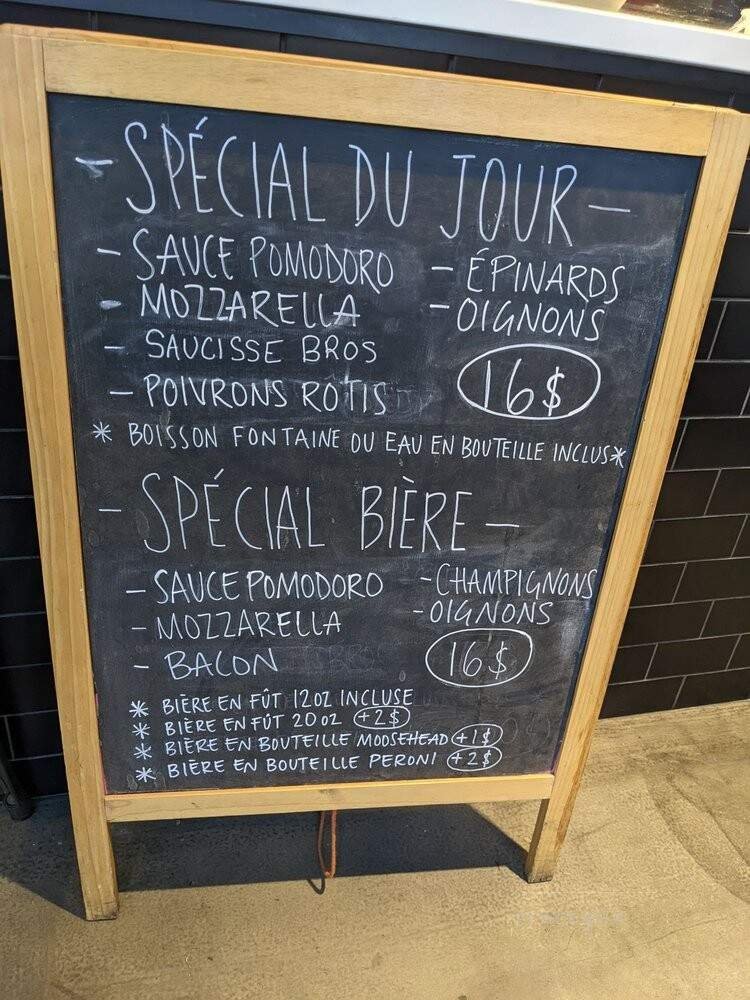 - SPÉCIAL DU JOUR -
- SAUCE POMODORO
- MOZZARELLA
- SAUCISSE BROS
- POIVRONS ROTIS
- ÉPINARDS
- OIGNONS
16$
* BOISSON FONTAINE OU EAU EN BOUTEILLE INCLUS *
- SPÉCIAL BIÈRE -
- SAUCE POMODORO
- MOZZARELLA
- BACON
- CHAMPIGNONS
- OIGNONS
16$
* BIÈRE EN FÛT 12OZ INCLUSE
* BIÈRE EN FÛT 20OZ +2$
* BIÈRE EN BOUTEILLE MOOSEHEAD +1$
* BIÈRE EN BOUTEILLE PERONI +2$